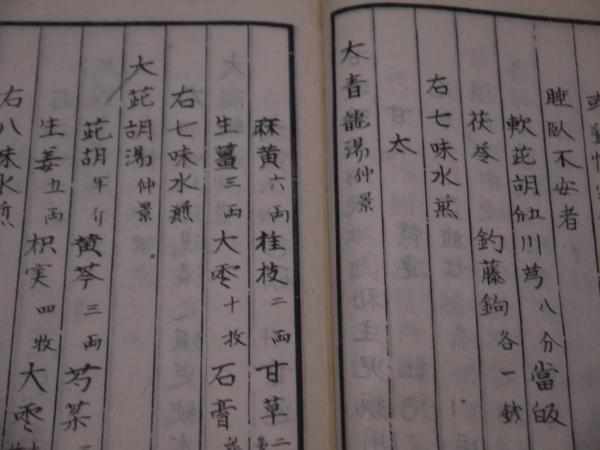 睡臥不安者
軟茈胡五分川芎八分當皈
茯苓 釣藤鉤各一錢
右七味水煎
太
大青龍湯仲景
麻黄六両桂枝二両甘草二
生薑三両大棗十枚石膏
右七味水煎
大茈胡湯仲景
茈胡半斤黄芩三両芍薬
生姜五両枳実四枚大棗
右八味水煎